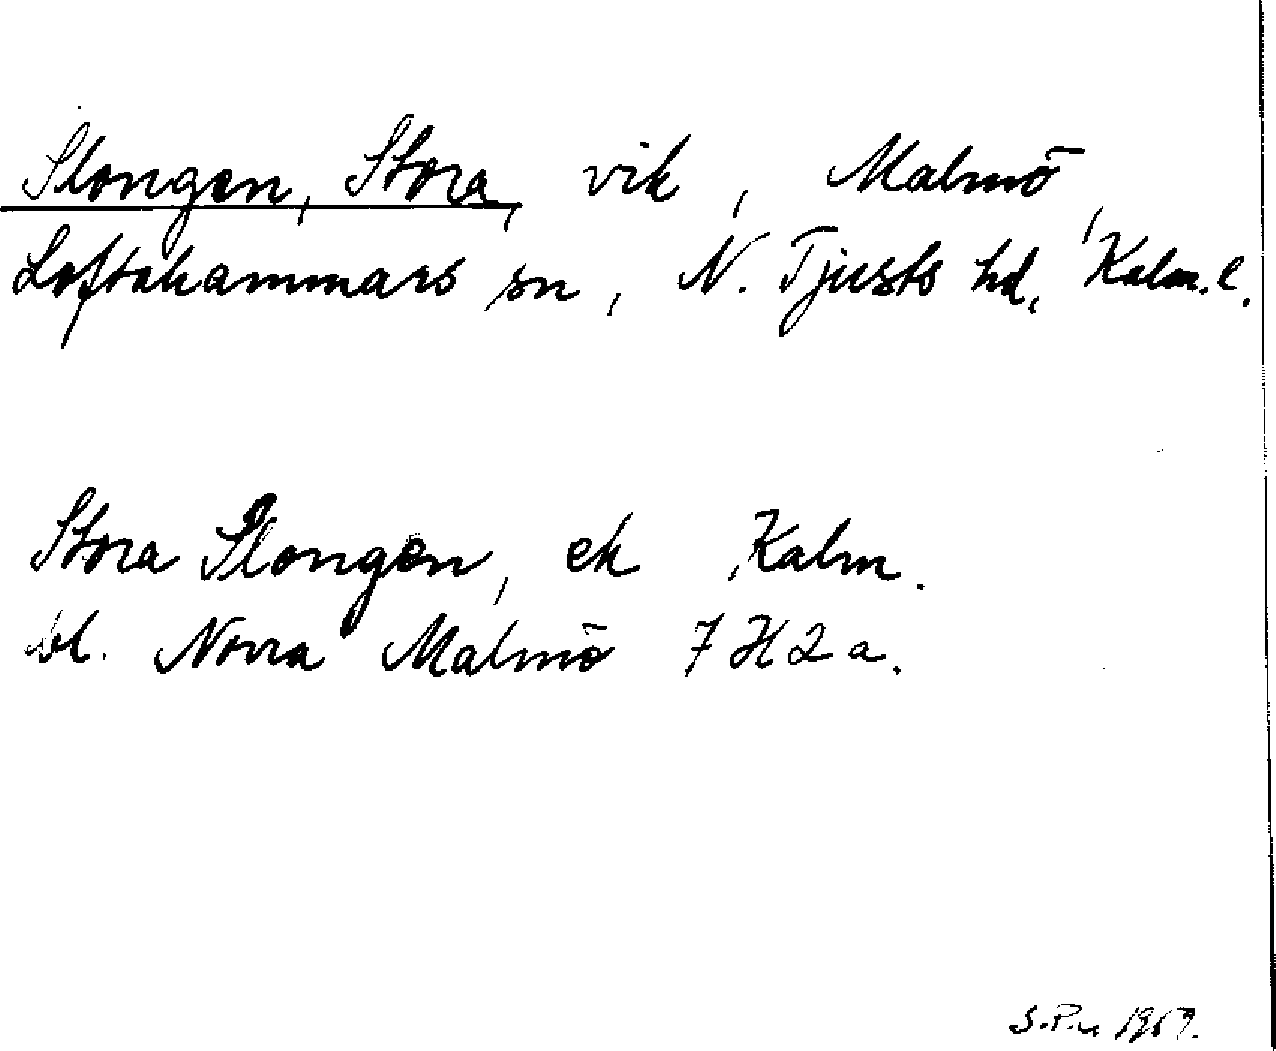 Slongen, Stora, vik, Malmö,
Loftahammars sn, N. Tjusts hd, Kalm. l.
Stora Slongen, ek Kalm.
bl. Norra Malmö 7 H 2 a.